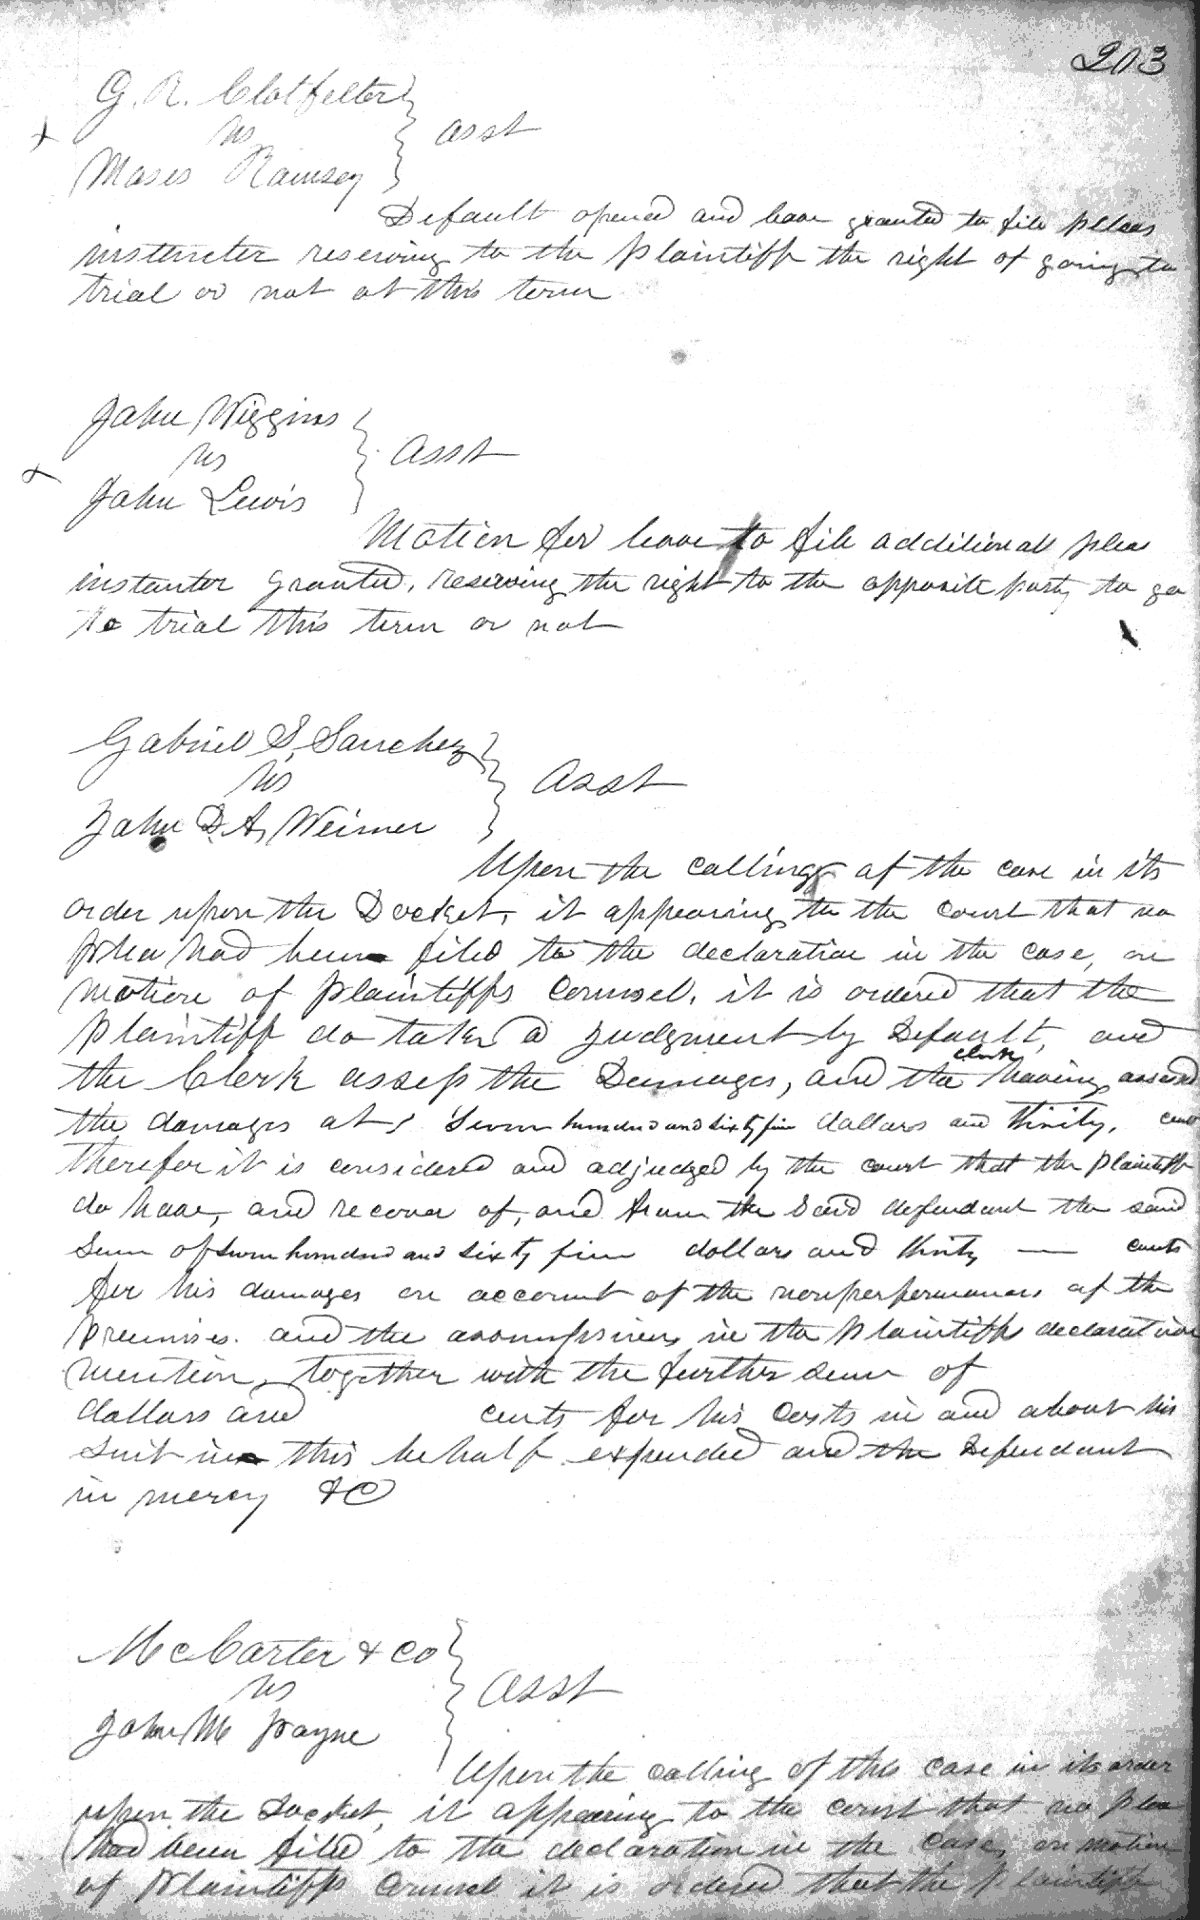 203
G. R. Clotfelter
vs
Moses Ramsey } Asst
Default opened and leave granted to file pleas
instanter reserving to the plaintiff the right of going to
trial or not at this term
John Wiggins
vs } Asst
John Lewis
Motion for leave to file additional plea
instanter granted, reserving the right to the opposite party to go
to trial this term or not
Gabriel S. Sanchez
vs } Asst
John D. A. Weimer
Upon the calling of the case in its
order upon the Docket, it appearing to the court that no
plea had been filed to the declaration in the case, on
motion of plaintiffs counsel, it is ordered that the
plaintiff do take a judgment by Default, and
the Clerk assess the Damages, and the clerk having assessed
the damages at Seven hundred and sixty five dollars and thirty, cents
therefor it is considered and adjudged by the court that the plaintiff
do have, and recover of, and from the said defendant the said
Sum of Seven hundred and sixty five dollars and thirty — cents
for his damages on account of the nonperformances of the
premises. and the assumpsions in the plaintiffs declaration
mention, together with the further sum of
dollars and cents for his Costs in and about his
suit in this behalf expended and the Defendant
in mercy &C
McCarter & Co
vs } Asst
John M Payne
Upon the calling of this case in its order
upon the Docket, it appearing to the court that no plea
had been filed to the declaration in the case, on motion
of plaintiffs counsel it is ordered that the plaintiff